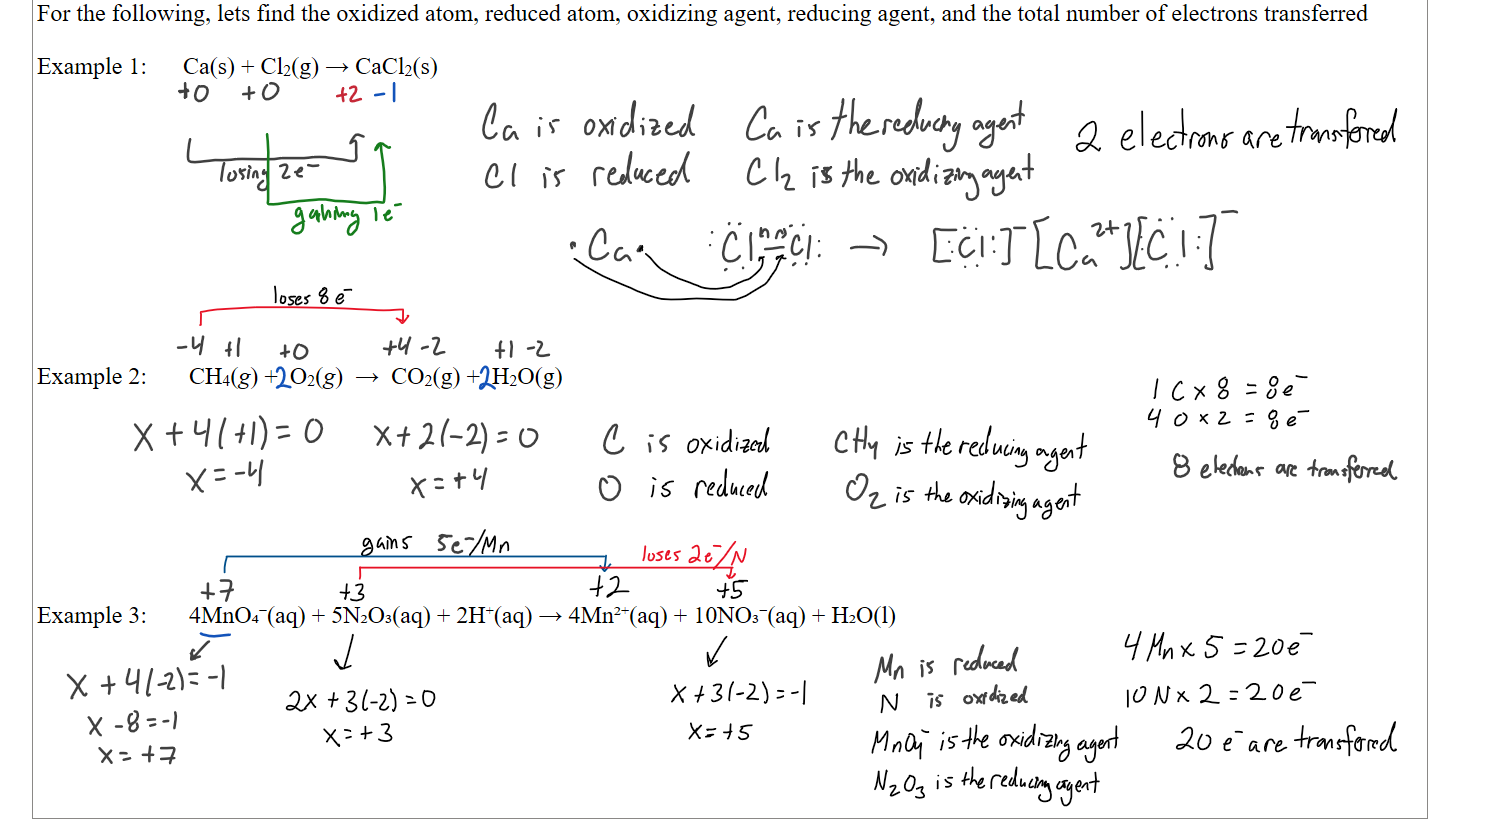 For the following, lets find the oxidized atom, reduced atom, oxidizing agent, reducing agent, and the total number of electrons transferred
Example 1: Ca(s) + Cl₂(g) → CaCl₂(s)
+0 +0 +2 -1
losing 2e⁻
gaining 1e⁻
Ca is oxidized
Cl is reduced
Ca is the reducing agent
Cl₂ is the oxidizing agent
2 electrons are transferred
·Ca· :Cl Cl: → [:Cl:]⁻ [Ca²⁺] [Cl:]⁻
loses 8 e⁻
-4 +1 +0 +4 -2 +1 -2
Example 2: CH₄(g) +2O₂(g) → CO₂(g) +2H₂O(g)
x + 4(+1) = 0
x = -4
x + 2(-2) = 0
x = +4
C is oxidized
O is reduced
CH₄ is the reducing agent
O₂ is the oxidizing agent
1 C x 8 = 8e⁻
4 O x 2 = 8e⁻
8 electrons are transferred
gains 5e⁻/Mn
loses 2e⁻/N
+7 +3 +2 +5
Example 3: 4MnO₄⁻(aq) + 5N₂O₃(aq) + 2H⁺(aq) → 4Mn²⁺(aq) + 10NO₃⁻(aq) + H₂O(l)
x + 4(-2) = -1
x - 8 = -1
x = +7
2x + 3(-2) = 0
x = +3
x + 3(-2) = -1
x = +5
Mn is reduced
N is oxidized
MnO₄⁻ is the oxidizing agent
N₂O₃ is the reducing agent
4 Mn x 5 = 20e⁻
10 N x 2 = 20e⁻
20 e⁻ are transferred